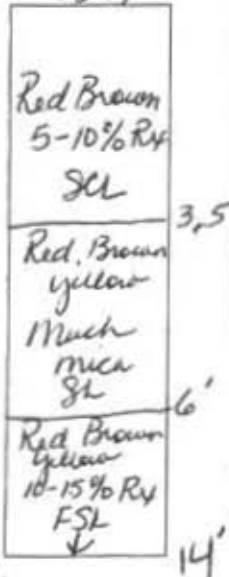 Red Brown
5-10% Rx
SCL
3,5
Red, Brown
yellow
Much
mica
SL
6'
Red Brown
yellow
10-15% Rx
FSL
14'